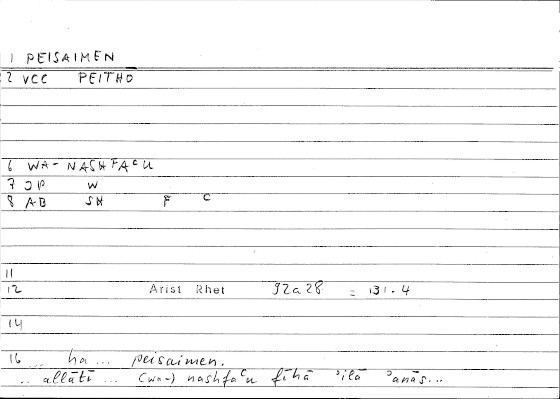 1 PEISAIMEN
2 VCC PEITHO
6 WA- NASHFAʿU
7 JP W
8 AB SH F C
11
12 Arist Rhet 92a28 = 131.4
14
16 ... ha... peisaimen.
.. allātī ... (wa-) nashfaʿu fīhā ʾilā ʾanās...